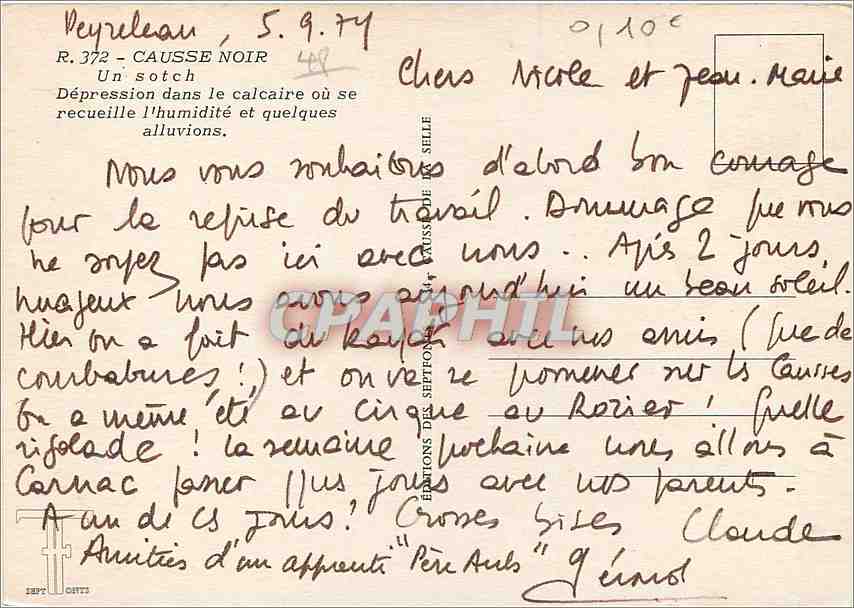 Peyreleau, 5.9.74
0,10€
48
R. 372 - CAUSSE NOIR
Un sotch
Dépression dans le calcaire où se
recueille l'humidité et quelques
alluvions.
Chers Nicole et Jean-Marie
Nous vous souhaitons d'abord bon courage
pour la reprise du travail. Dommage que vous
ne soyez pas ici avec nous.. Après 2 jours
nuageux nous avons aujourd'hui un beau soleil.
Hier on a fait du Kayak avec nos amis (que de
courbatures!) et on va se promener sur les Causses
On a même été au cirque au Rozier! Quelle
rigolade! La semaine prochaine nous allons à
Carnac passer plus jours avec nos parents.
A un de ces jours! Grosses bises Claude
Amitiés d'un apprenti "Père
Gérard
ÉDITIONS DES SEPTFONTS
DE LA SELLE
CPAPHIL
SEPT FONTS